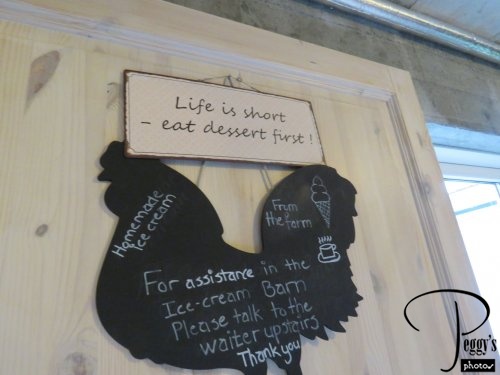 Life is short
- eat dessert first !
Homemade
Ice cream
From
the farm
For assistance in the
Ice-cream Barn
Please talk to the
waiter upstairs
Thank you
Peggy's
photos